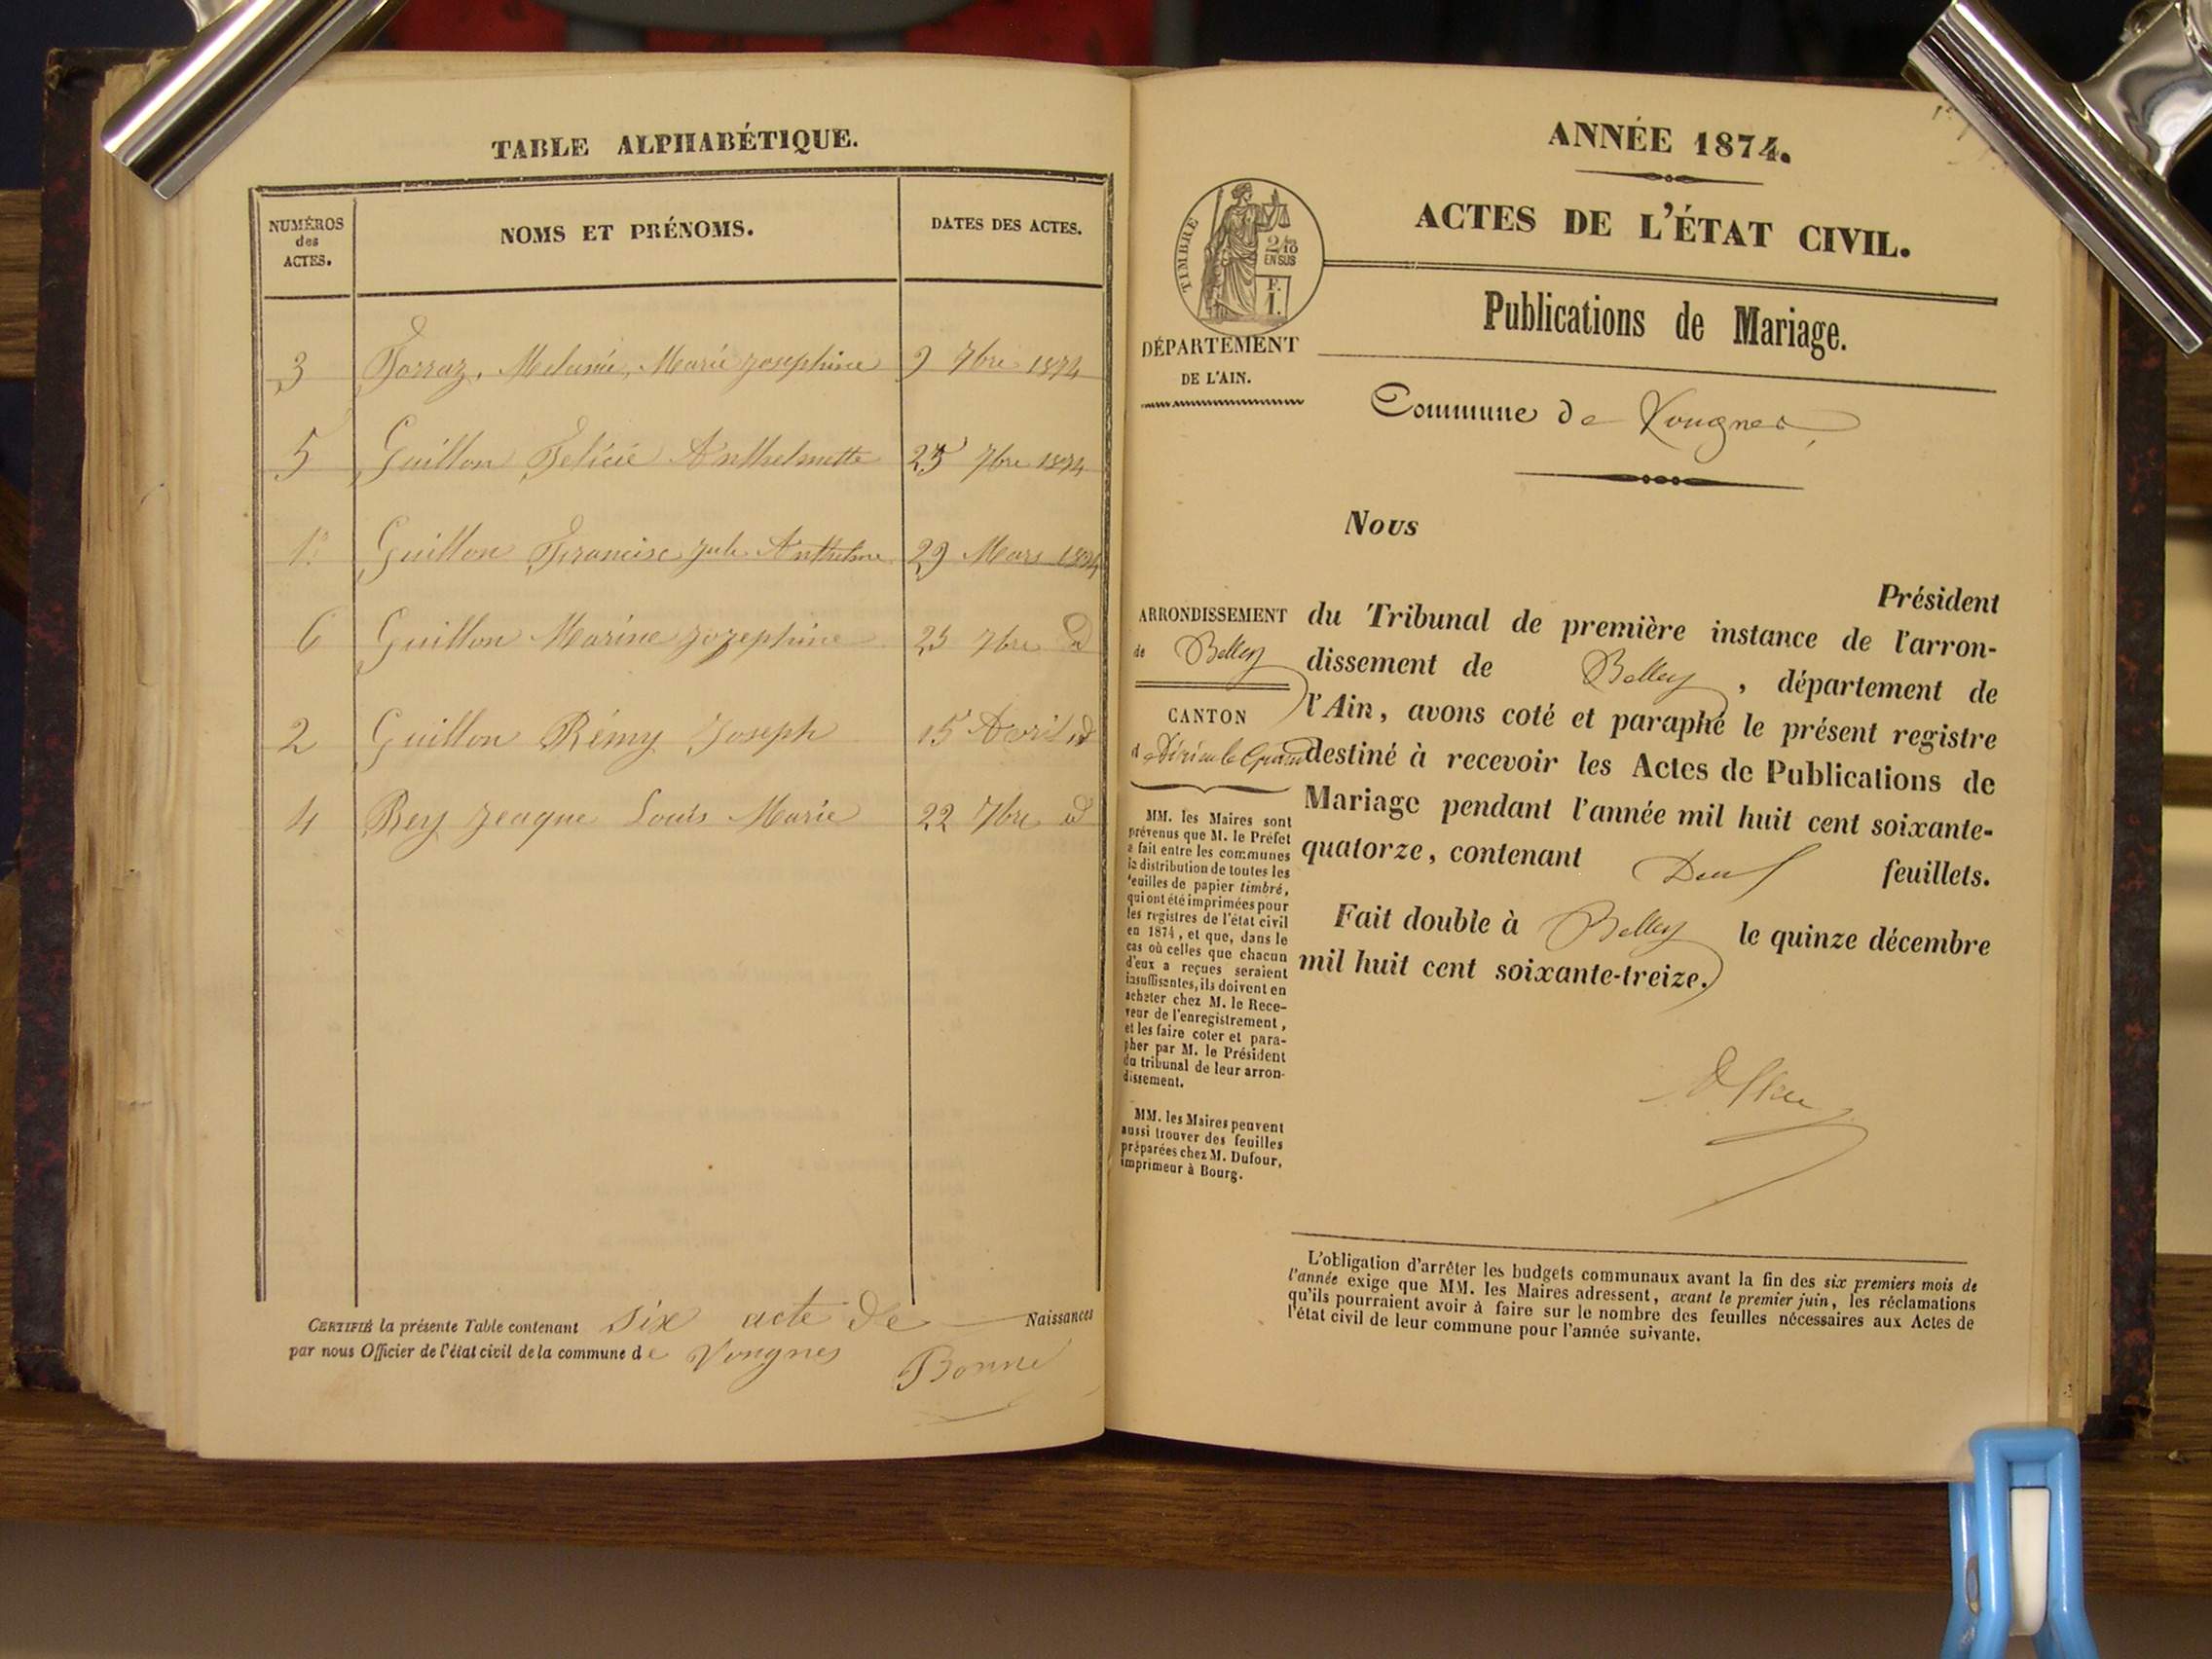 TABLE ALPHABÉTIQUE.
NUMÉROS
des
ACTES.
NOMS ET PRÉNOMS.
DATES DES ACTES.
3 Forraz, Melanie, Marie Josephine 9 7bre 1874
5 Guillon Felicie Anthelmette 23 7bre 1874
1 Guillon Francisc Jule Anthelme 29 Mars 1874
6 Guillon Marine Jozephine 23 7bre d
2 Guillon Rémy Joseph 15 Avril d
4 Rey Jeaque Louis Marie 22 7bre d
CERTIFIÉ la présente Table contenant six acte de Naissances
par nous Officier de l'état civil de la commune de Vongnes
Bonne
ANNÉE 1874.
ACTES DE L'ÉTAT CIVIL.
TIMBRE
2/10
EN SUS
F.
1.
Publications de Mariage.
DÉPARTEMENT
DE L'AIN.
Commune de Vongnes
Nous
Président
du Tribunal de première instance de l'arron-
dissement de Belley, département de
l'Ain, avons coté et paraphé le présent registre
destiné à recevoir les Actes de Publications de
Mariage pendant l'année mil huit cent soixante-
quatorze, contenant Deux feuillets.
Fait double à Belley le quinze décembre
mil huit cent soixante-treize.
ARRONDISSEMENT
de Belley
CANTON
d
MM. les Maires sont
prévenus que M. le Préfet
a fait entre les communes
la distribution de toutes les
feuilles de papier timbré,
qui ont été imprimées pour
les registres de l'état civil
en 1874, et que, dans le
cas où celles que chacun
d'eux a reçues seraient
insuffisantes, ils doivent en
acheter chez M. le Rece-
veur de l'enregistrement,
et les faire coter et para-
pher par M. le Président
du tribunal de leur arron-
dissement.
MM. les Maires peuvent
aussi trouver des feuilles
préparées chez M. Dufour,
imprimeur à Bourg.
L'obligation d'arrêter les budgets communaux avant la fin des six premiers mois de
l'année exige que MM. les Maires adressent, avant le premier juin, les réclamations
qu'ils pourraient avoir à faire sur le nombre des feuilles nécessaires aux Actes de
l'état civil de leur commune pour l'année suivante.